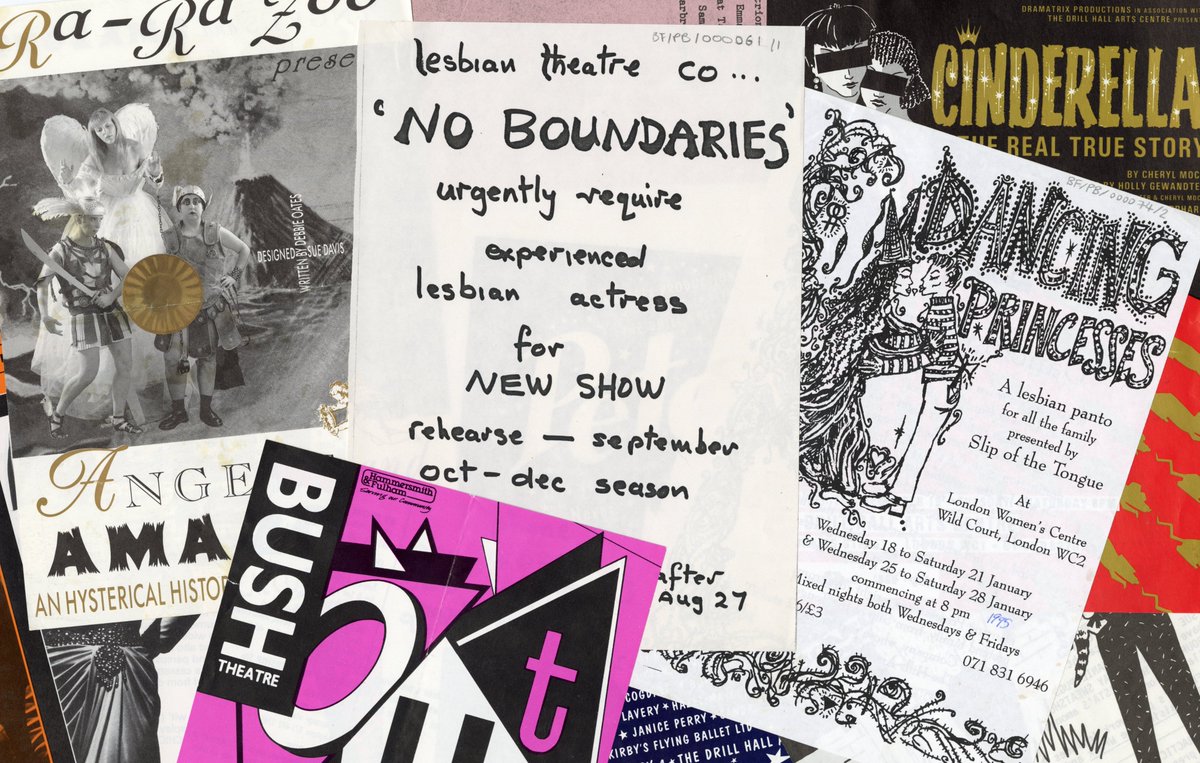 Ra-Ra Zoo
prese
WRITTEN BY DEBBIE OATES
DESIGNED SUE DAVIS
ANGE
AMA
AN HYSTERICAL HISTOR
BF/PB/000061/1
lesbian theatre co...
'NO BOUNDARIES'
urgently require
experienced
lesbian actress
for
NEW SHOW
rehearse — september
oct - dec season
after
Aug 27
BUSH
THEATRE
Hammersmith
& Fulham
Serving our Community
Out
DRAMATRIX PRODUCTIONS IN ASSOCIATION WI
THE DRILL HALL ARTS CENTRE PRESE
CINDERELLA
THE REAL TRUE STORY
BY CHERYL MOC
BY HOLLY GEWANDTE
& CHERYL MOC
BF/PB/000074/2
DANCING
PRINCESSES
A lesbian panto
for all the family
presented by
Slip of the Tongue
At
London Women's Centre
Wild Court, London WC2
Wednesday 18 to Saturday 21 January
& Wednesday 25 to Saturday 28 January
commencing at 8 pm 1995
Mixed nights both Wednesdays & Fridays
6/£3
071 831 6946
LAVERY ★ HA
★ JANICE PERRY ★
KIRBY'S FLYING BALLET
★ THE DRILL HALL